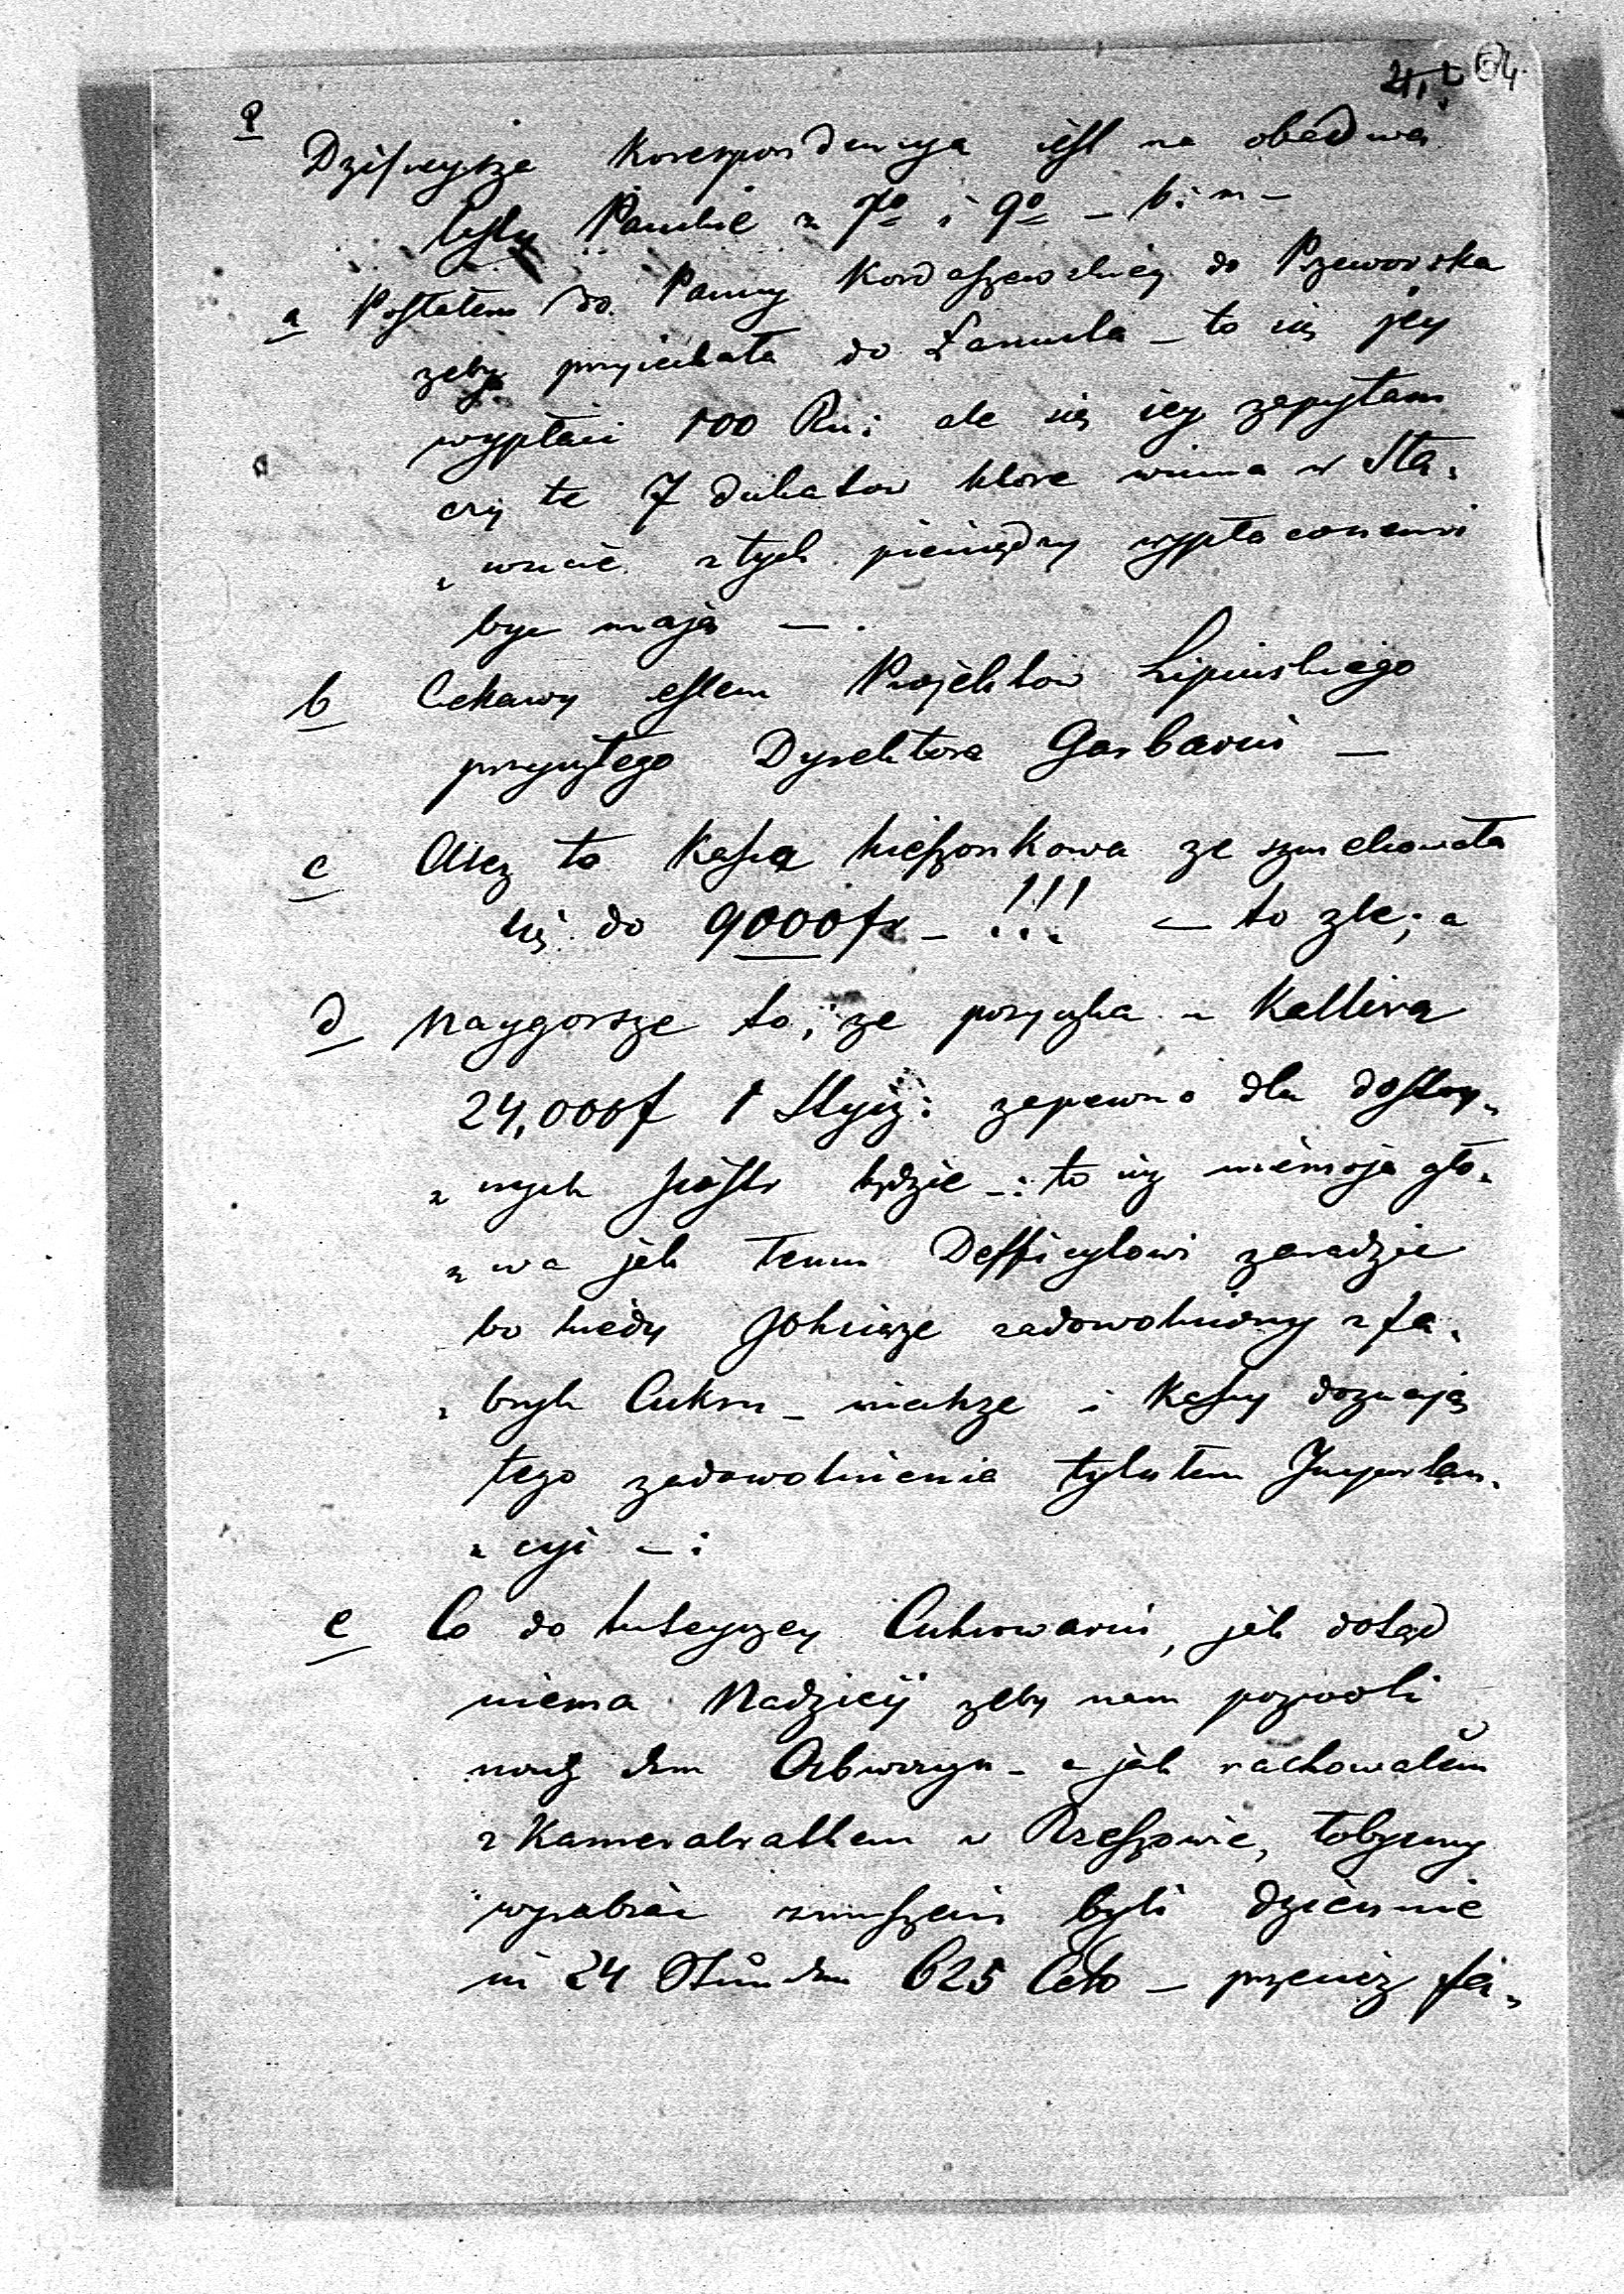 64.
P
Dzisieysza Korespondencya iest na obadwa
listy Pańskie z 7º i 9º – b: m –
a Posłałem do Panny Kordaszewskiey do Przeworska
zeby przyiechała do Łancuta – to się jey
wypłaci 100 Rn: ale się iey zapytam
czy te 7 dukatow ktore winna w Sta,
„ wnie z tych pieniędzy wypłaconemi
byc maja — .
b Ciekawy estem Projektow Lipinskiego
przyszłego Dyrektora Garbarni —
c Alesz to Kassa kieszonkowa ze szuchowała
się do 9000 fr – !!! — to zle; a
d Naygorsze to, ze pozyczka u Kallira
24,000 f 1 Stycz: zapewno dla dostoy„
„ nych siostr będzie –: to iuz niemoja gło„
„ wa jak temu Defficytowi zaradzic
bo kiedy JOksiąze zadowolniony z fa„
„ bryk Cukru – niechze i Kassy doznają
tego zadowolnienia tytułem Importan„
„ cyi – :
e Co do tuteyszey Cukrowarni, jak dotąd
niema Nadzieij zeby nam pozwoli
nach dem Abwurzyn – a jak rachowałem
z Kameralrathem w Rzeszowie, tobysmy
wyrabiac zmuszeni byli dziennie
in 24 Stunden 625 Cetn – przeciez fa„